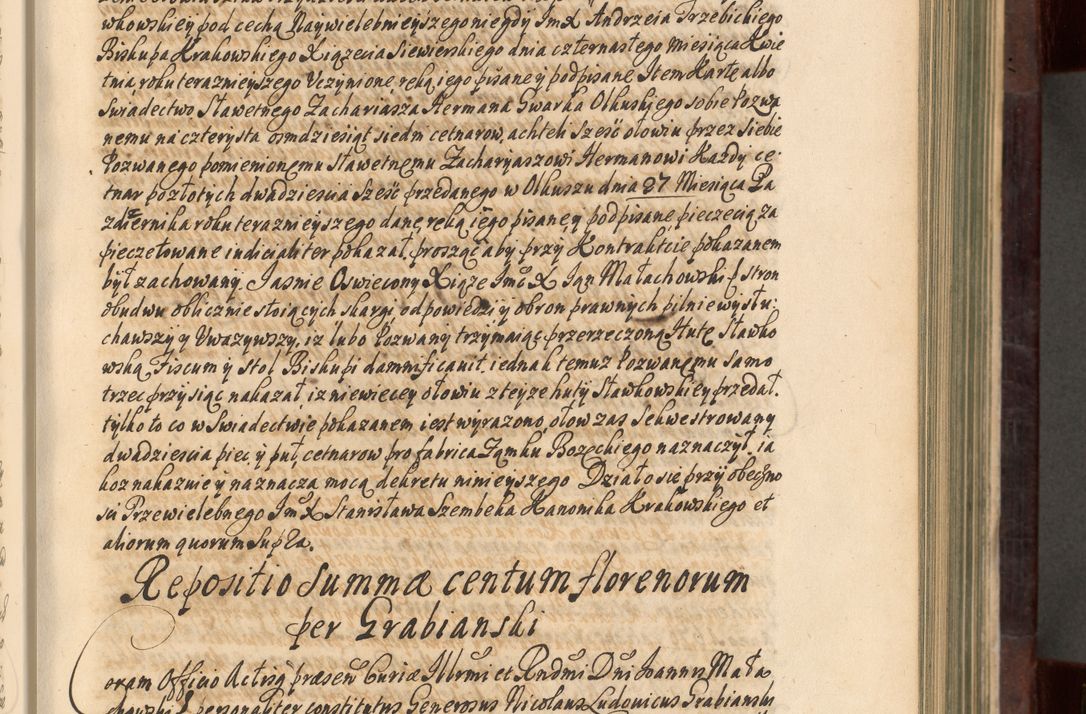 wkowskiey pod cechą Naywielebnieyszego niegdy Jm X Andrzeia Trzebickiego
Biskupa Krakowskiego Xiązęcia Siewierskiego dnia czternastego Miesiąca Kwie
tnia roku teraznieyszego Uczynione, ręką iego pisane y podpisane Item Kartę albo
Swiadectwo Sławetnego Zachariasza Hermana Gwarka Olkuskiego sobie Pozwa
nemu na czterysta osmdziesiąt siedm cetnarow, achteli sześć ołowiu przez siebie
Pozwanego pomienionemu sławetnemu Zacharyaszowi Hermanowi Kazdy ce
tnar po złotych dwadziescia sześć przedanego w Olkuszu dnia 27 Miesiąca Pa
zdziernika roku teraznieyszego danę, ręką iego pisane, y podpisane pieczęcią za
pieczętowane indicialiter pokazał, prosząc aby przy Kontrakcie pokazanem
był zachowany. Jasnie Oswiecony Xiąże Jmć X Jan Małachowski stron
obudwu oblicznie stoiących skargi odpowiedzi y obron prawnych pilnie wysłu
chawszy y Uwazywszy, iz lubo Pozwany trzymaiąc przerzeczoną Hutę Sławko
wską Fiscum y Stoł Biskupi damnificauit, iednak temuz Pozwanemu samo
trzec przysiąc nakazał, iz niewięcey ołowiu z teyze huty Sławkowskiey przedał,
tylko to co w Swiadectwie pokazanem iest wyrazono, ołow zas Sekwestrowany
dwadziescia pięc y puł, cetnarow pro fabrica Zamku Bozęckiego naznaczył, ia
koz nakazuie y naznacza mocą dekretu ninieyszego Działo się przy obecno
sci Przewielebnego Jm X Stanisława Szembeka Kanonika Krakowskiego et
aliorum quorum supra.
Repositio Summæ centum florenorum
per Grabianski
Coram Officio Actisq præsen Curiæ Illrmi et Rndmi Dni Joannis Mała
chowski personaliter constitutus Generosus Nicolaus Ludovicus Grabianski